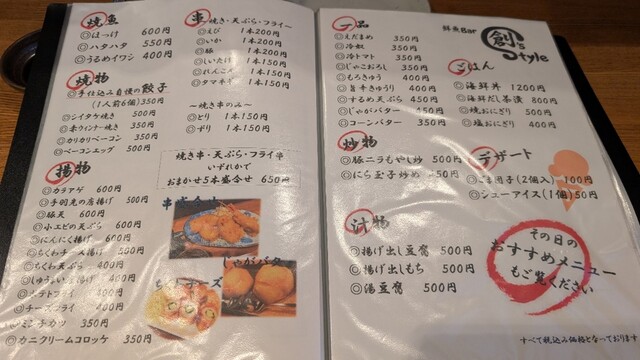 焼魚
◎ほっけ 600円
◎ハタハタ 550円
◎うるめイワシ 400円
焼物
◎手仕込み自慢の餃子
(1人前6個)350円
◎シイタケ焼き 500円
◎赤ウインナー焼き 350円
◎カリカリベーコン 350円
◎ベーコンエッグ 500円
揚物
◎カラアゲ 600円
◎手羽先の唐揚げ 500円
◎豚天 600円
◎小エビの天ぷら 600円
◎にんにく揚げ 600円
◎ちくわチーズ揚げ 500円
◎ちくわ天ぷら 400円
◎しゅうまい 400円
◎ポテトフライ 400円
◎チーズフライ 400円
◎ミンチカツ 350円
◎カニクリームコロッケ 350円
串 焼き・天ぷら・フライ
◎えび 1本200円
◎いか 1本200円
◎豚 1本200円
◎しいたけ 1本150円
◎れんこん 1本150円
◎タマネギ 1本150円
~焼き串のみ~
◎とり 1本150円
◎ずり 1本150円
焼き串・天ぷら・フライ串
いずれかで
おまかせ5本盛合せ 650円
串盛合せ
じゃがバター
チーズ
一品
◎えだまめ 350円
◎冷奴 350円
◎冷トマト 350円
◎じゃこおろし 350円
◎もろきゅう 400円
◎旨辛きゅうり 400円
◎するめ天ぷら 450円
◎じゃがバター 450円
◎コーンバター 350円
炒物
◎豚ニラもやし炒め 500円
◎にら玉子炒め 500円
汁物
◎揚げ出し豆腐 500円
◎揚げ出しもち 500円
◎湯豆腐 500円
鮮魚Bar
創's
Style
ごはん
◎海鮮丼 1200円
◎海鮮だし茶漬 800円
◎焼おにぎり 400円
◎塩おにぎり 400円
デザート
◎ごま団子(2個入) 100円
◎シューアイス(1個)50円
その日の
おすすめメニュー
もご覧ください
*すべて税込み価格となっております